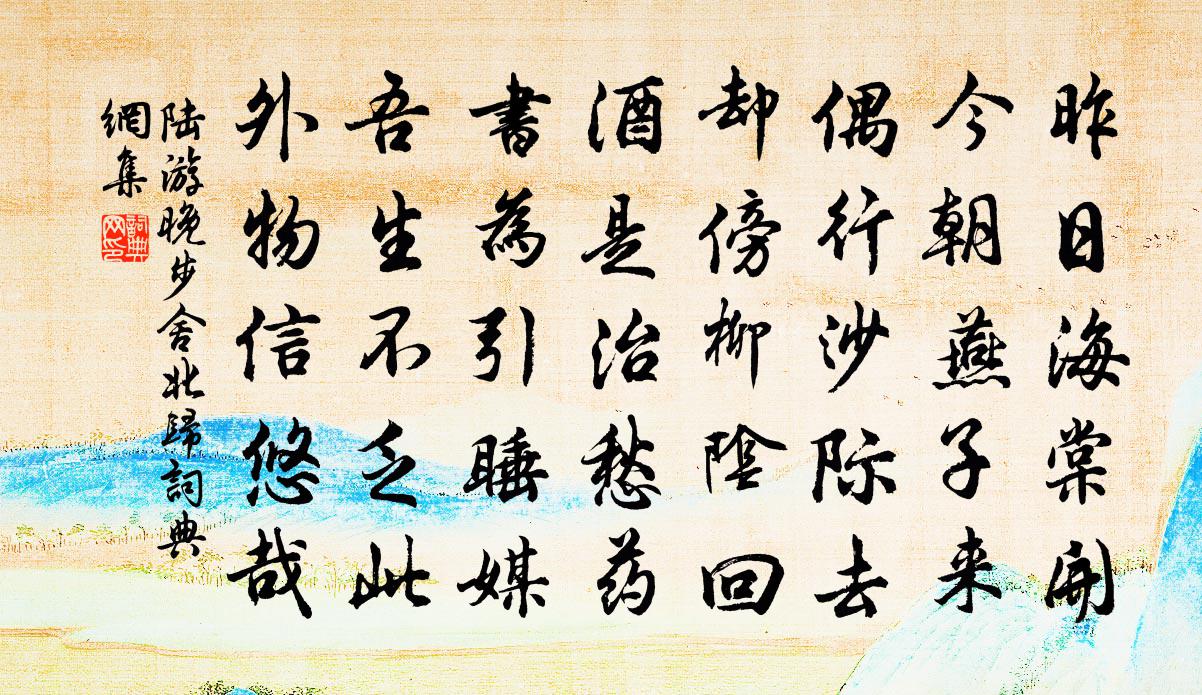 昨日海棠開
今朝燕子来
偶行沙际去
却傍柳陰回
酒是治愁药
書為引睡媒
吾生不乏此
外物信悠哉
陆游晚步舍北歸詞典
網集
詞典
网印